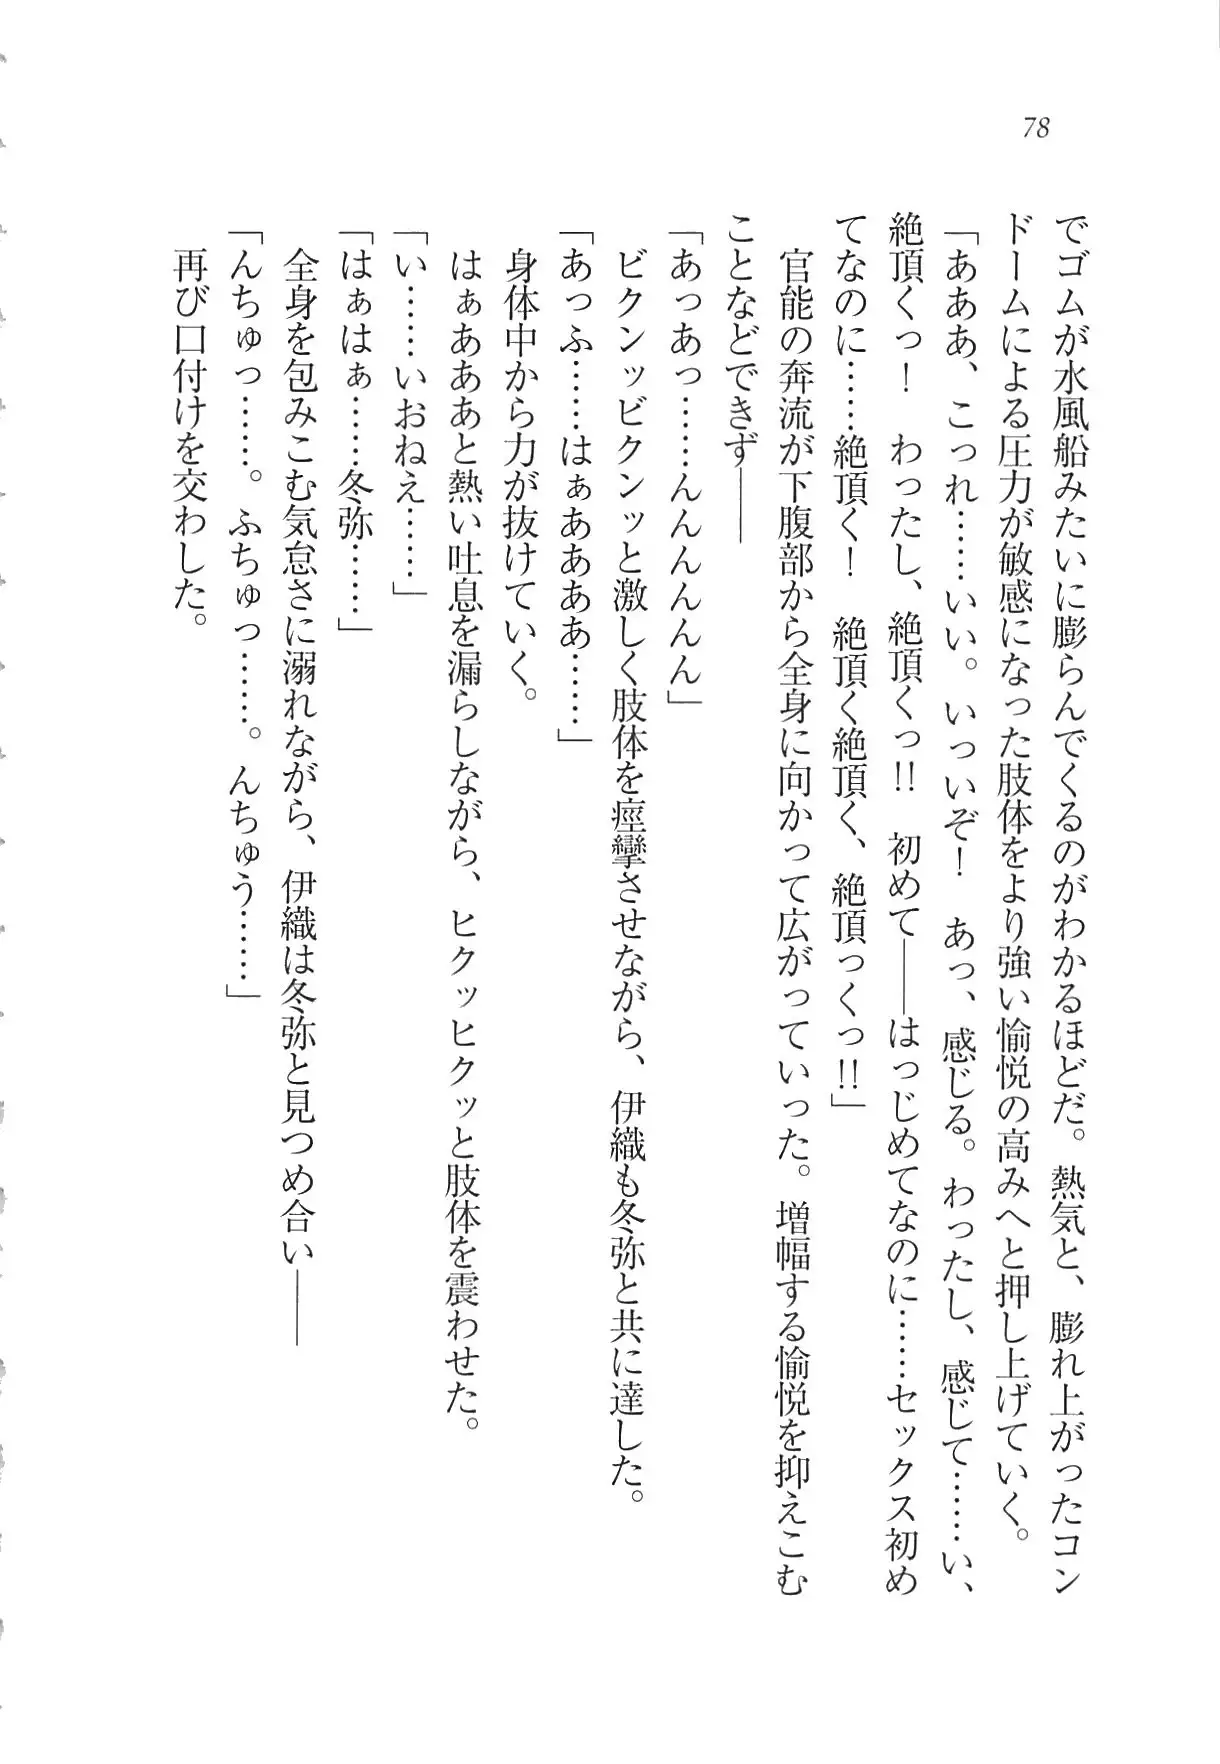 78
でゴムが水風船みたいに膨らんでくるのがわかるほどだ。熱気と、膨れ上がったコン
ドームによる圧力が敏感になった肢体をより強い愉悦の高みへと押し上げていく。
「あああ、こっれ……いい。いっいぞ！　あっ、感じる。わったし、感じて……い、
絶頂くっ！　わったし、絶頂くっ!!　初めて――はっじめてなのに……セックス初め
てなのに……絶頂く！　絶頂く絶頂く、絶頂っくっ!!」
官能の奔流が下腹部から全身に向かって広がっていった。増幅する愉悦を抑えこむ
ことなどできず――
「あっあっ……んんんんんん」
ビクンッビクンッと激しく肢体を痙攣させながら、伊織も冬弥と共に達した。
「あっふ……はぁああああ……」
身体中から力が抜けていく。
はぁあああと熱い吐息を漏らしながら、ヒクッヒクッと肢体を震わせた。
「い……いおねえ……」
「はぁはぁ……冬弥……」
全身を包みこむ気怠さに溺れながら、伊織は冬弥と見つめ合い――
「んちゅっ……。ふちゅっ……。んちゅう……」
再び口付けを交わした。